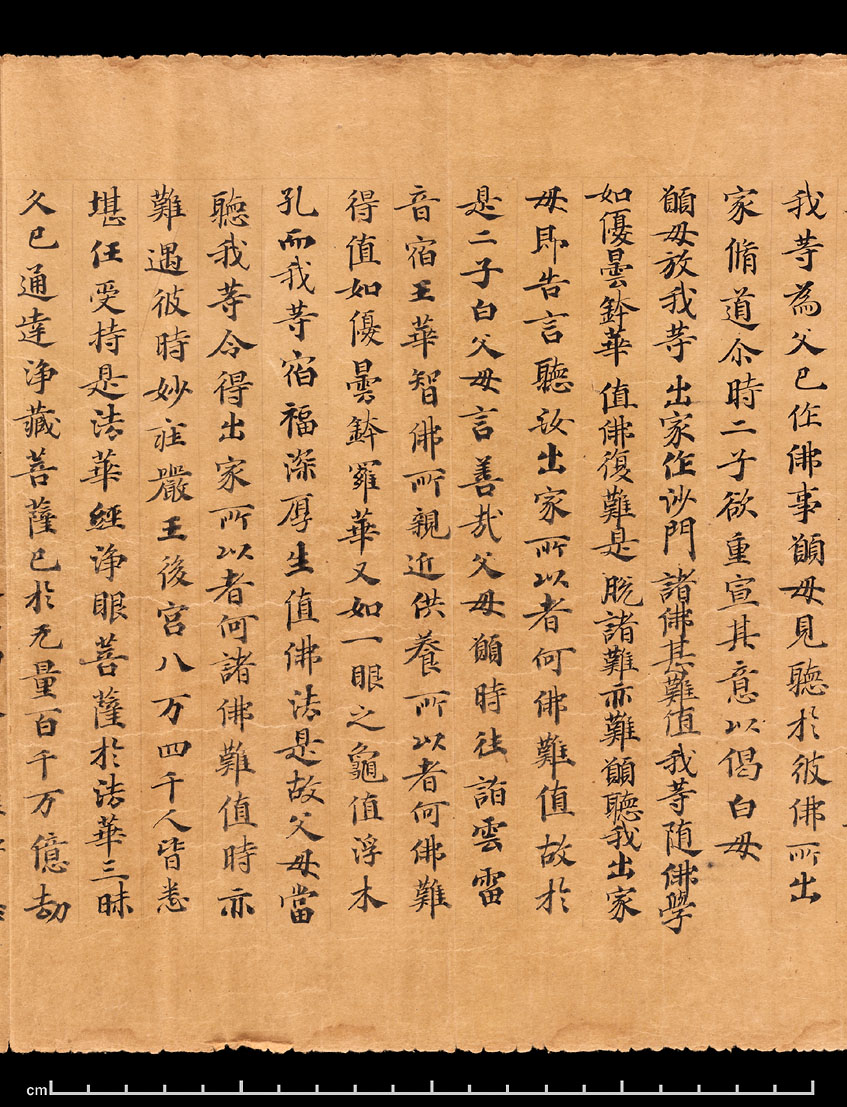 我等為父已作佛事願母見聽於彼佛所出
家脩道尒時二子欲重宣其意以偈白母
願母放我等出家作沙門諸佛甚難值我等随佛學
如優曇鉢華值佛復難是脫諸難亦難願聽我出家
母即告言聽汝出家所以者何佛難值故於
是二子白父母言善哉父母願時往詣雲雷
音宿王華智佛所親近供養所以者何佛難
得值如優曇鉢羅華又如一眼之龜值浮木
孔而我等宿福深厚生值佛法是故父母當
聽我等令得出家所以者何諸佛難值時亦
難遇彼時妙莊嚴王後宮八万四千人皆悉
堪任受持是法華經淨眼菩薩於法華三昧
久已通達淨藏菩薩已於无量百千万億劫
cm